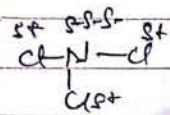 δ+ δ-δ-δ- δ+
Cl-N-Cl
Clδ+